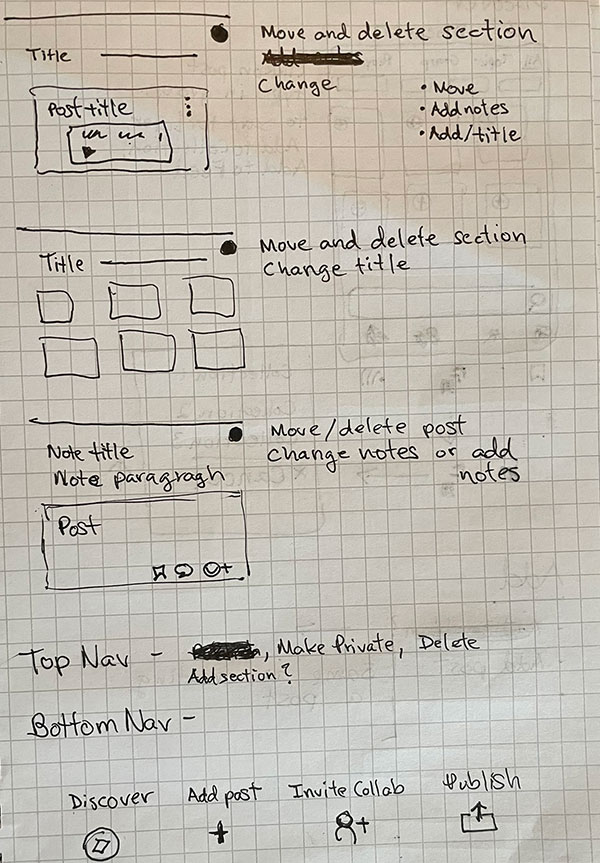 Move and delete section
Title
Change
• Move
• Add notes
• Add/title
Post title
Move and delete section
Change title
Title
Move/delete post
Change notes or add
notes
Note title
Note paragragh
Post
Top Nav - , Make Private, Delete
Add section?
Bottom Nav -
Discover Add post Invite Collab Publish